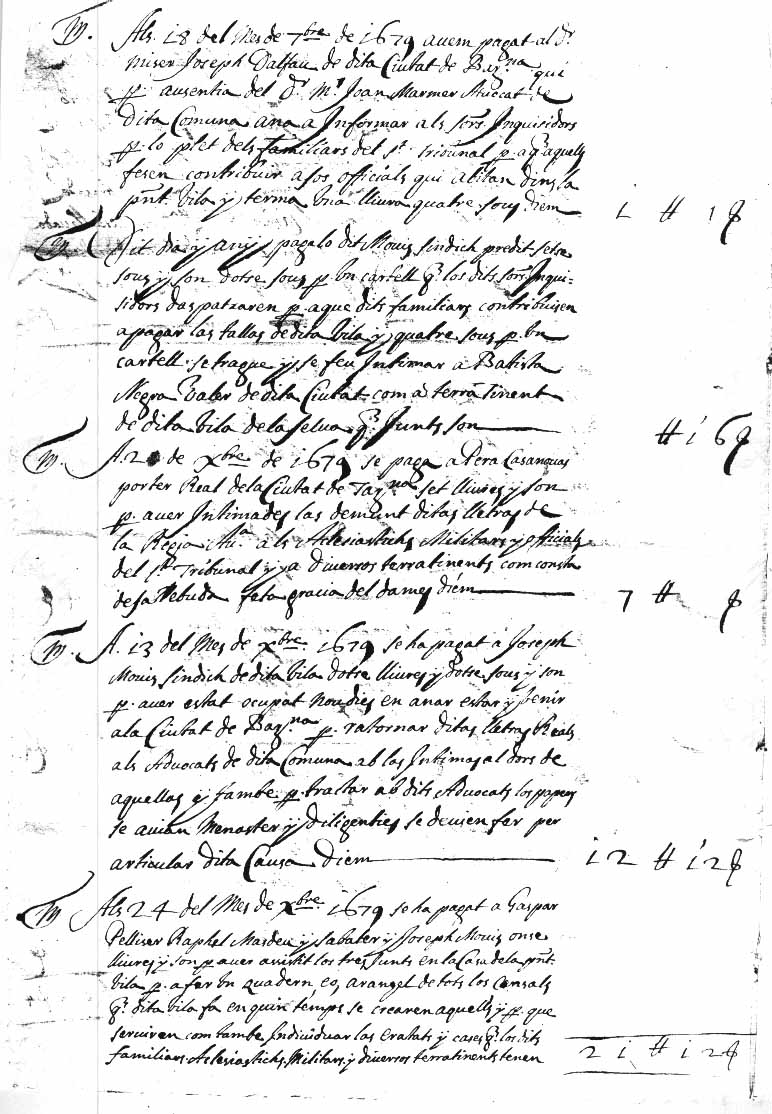 m. Als 18 del Mes de 7bre de 1679 avem pagat al Dr.
miser Joseph Dalfau de dita Ciutat de Bar.na qui
p. ausentia del Dr. Mr. Joan Marmer Auccat de
dita Comuna ana a Informar als Srs. Inquisidors
p. lo plet dels familiars del St. tribunal p. aq. aquells
fesen contribuir a sos officials qui abitan dins la
pnt. vila y terma una lliura quatre sous diem 1 ll 4 s
m. Dit dia y any paga lo dit Mouis sindich predit setse
sous y son dotse sous p. un cartell q. los dits Srs. Inqui-
sidors daspatxaren p. a que dits familiars contribuisen
a pagar las tallas de dita vila y quatre sous p. un
cartell se trague y se feu Intimar a Batista
Negra valer de dita Ciutat com a terratinent
de dita vila de la selva q.s Junts son ll 16 s
m. A 20 de xbre de 1679 se paga a Pera Casanovas
porter Real de la Ciutat de Tar.na set lliures y son
p. aver Intimades las demunt ditas lletras de
la Regia Au.a als Aclesiastichs Militars y officials
del St. Tribunal y a diversos terratinents com consta
de sa Rebuda feta gracia del dames diem 7 ll s
m. A 13 del Mes de xbre 1679 se ha pagat a Joseph
Mouis sindich de dita vila dotse lliures y dotse sous y son
p. aver estat ocupat nou dies en anar estar y venir
a la Ciutat de Bar.na p. ratornar ditas lletras Reals
als Advocats de dita Comuna ab las Intimas al dors de
aquellas y tambe p. tractar ab dits Advocats los papers
se avian Menaster y diligenties se devien fer per
articular dita Causa diem 12 ll 12 s
m. Als 24 del Mes de xbre 1679 se ha pagat a Gaspar
Pelliser Raphel Masdeu y Sabater y Joseph Mouis onse
lliures y son p. aver assistit los tres Junts en la Casa de la pnt.
vila p. a fer un quadern, eo, aransel de tots los Censals
q. dita vila fa en quin temps se crearen aquells y p. que
serviren com tambe Individuar las eratats y cases q. los dits
familiars Aclesiastichs, Militars, y diversos terratinents tenen 21 ll 12 s